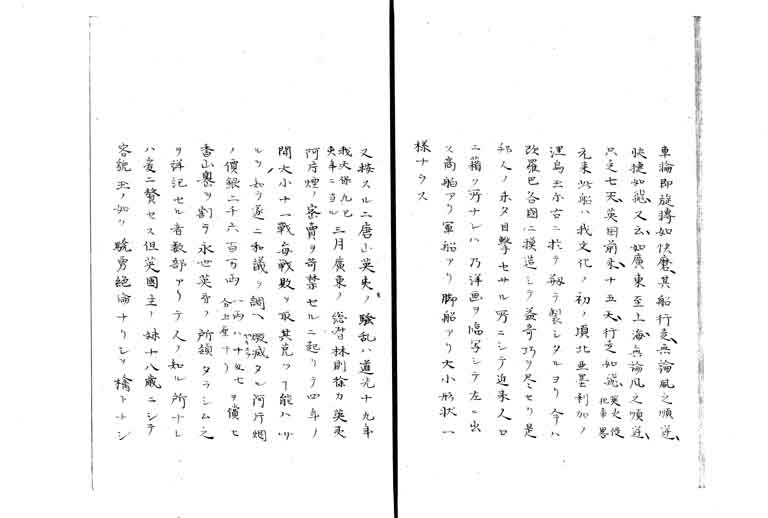 車輪即旋轉如快磨其船行走無論風之順逆
快捷如飛又云如廣東至上海無論風之順逆
只走七天英國前來十五天行走如飛
元来此船ハ我文化ノ初ノ頃北亜墨利加ノ
 於テ製シタルヨリ今ハ
欧羅巴各國ニ模造シテ益奇巧ヲ尽セリ是
邦人ノ未タ目撃セサル所ニシテ近来人口
ニ藉ク所ナレハ乃洋画ヲ臨写シテ左ニ出
ス商船アリ軍船アリ脚船アリ大小形状一
様ナラス
又按スルニ唐山英夷ノ騒乱ハ道光十九年
我天保九己亥年ニ当ル 三月廣東ノ総督林則徐カ英夷
阿片煙ノ密賣ヲ苛禁セルニ起リテ四年ノ
間大小十一戦毎戦敗ヲ取其克ツ事能ハサ
ルヲ知テ遂ニ和議ヲ調ヘ燬滅タル阿片烟
ノ價銀二千六百万両
香山嶴ヲ割テ永世英夷ノ所領タラシム之
ヲ詳記セル者数部アリテ人ノ知ル所ナレ
ハ爰ニ贅セス但英國主ノ妹十八歳ニシテ
容貌玉ノ如ク驍勇絶倫ナリシヲ擒トナシ